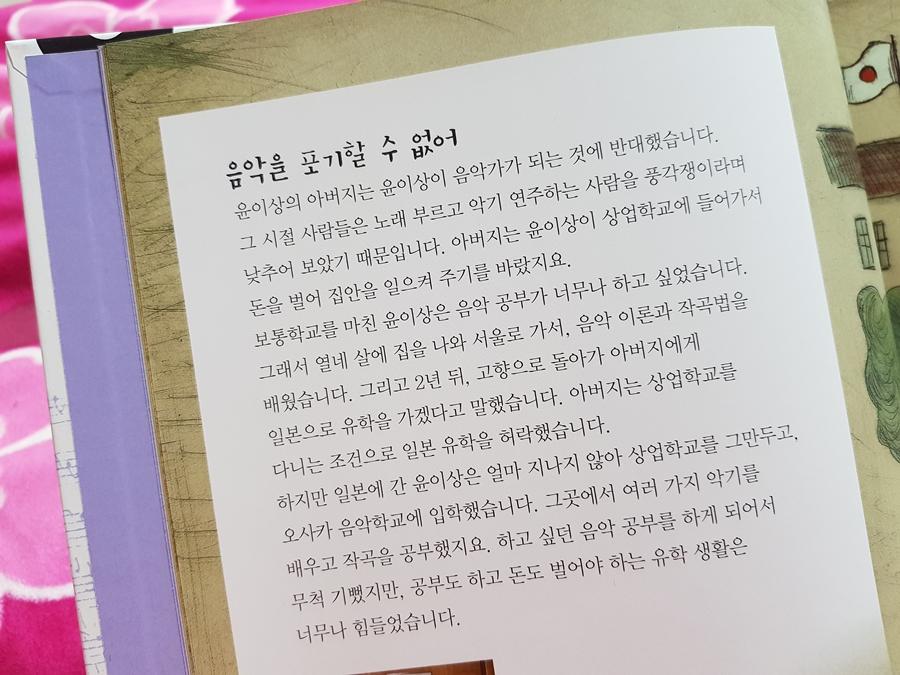 음악을 포기할 수 없어
윤이상의 아버지는 윤이상이 음악가가 되는 것에 반대했습니다.
그 시절 사람들은 노래 부르고 악기 연주하는 사람을 풍각쟁이라며
낮추어 보았기 때문입니다. 아버지는 윤이상이 상업학교에 들어가서
돈을 벌어 집안을 일으켜 주기를 바랐지요.
보통학교를 마친 윤이상은 음악 공부가 너무나 하고 싶었습니다.
그래서 열네 살에 집을 나와 서울로 가서, 음악 이론과 작곡법을
배웠습니다. 그리고 2년 뒤, 고향으로 돌아가 아버지에게
일본으로 유학을 가겠다고 말했습니다. 아버지는 상업학교를
다니는 조건으로 일본 유학을 허락했습니다.
하지만 일본에 간 윤이상은 얼마 지나지 않아 상업학교를 그만두고,
오사카 음악학교에 입학했습니다. 그곳에서 여러 가지 악기를
배우고 작곡을 공부했지요. 하고 싶던 음악 공부를 하게 되어서
무척 기뻤지만, 공부도 하고 돈도 벌어야 하는 유학 생활은
너무나 힘들었습니다.